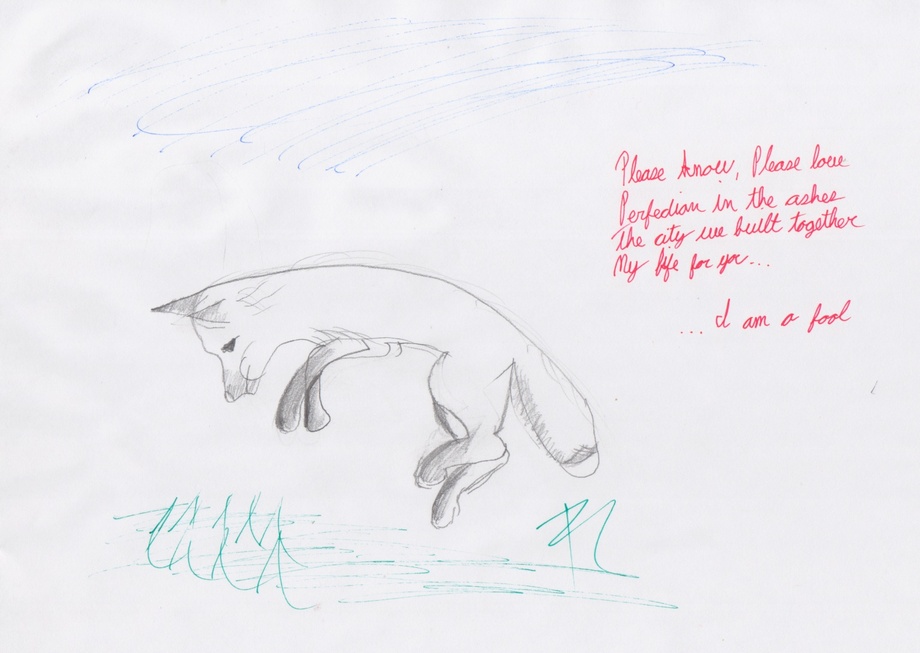 Please know, Please love
Perfedian in the ashes
The city we built together
My life for you...
...I am a fool